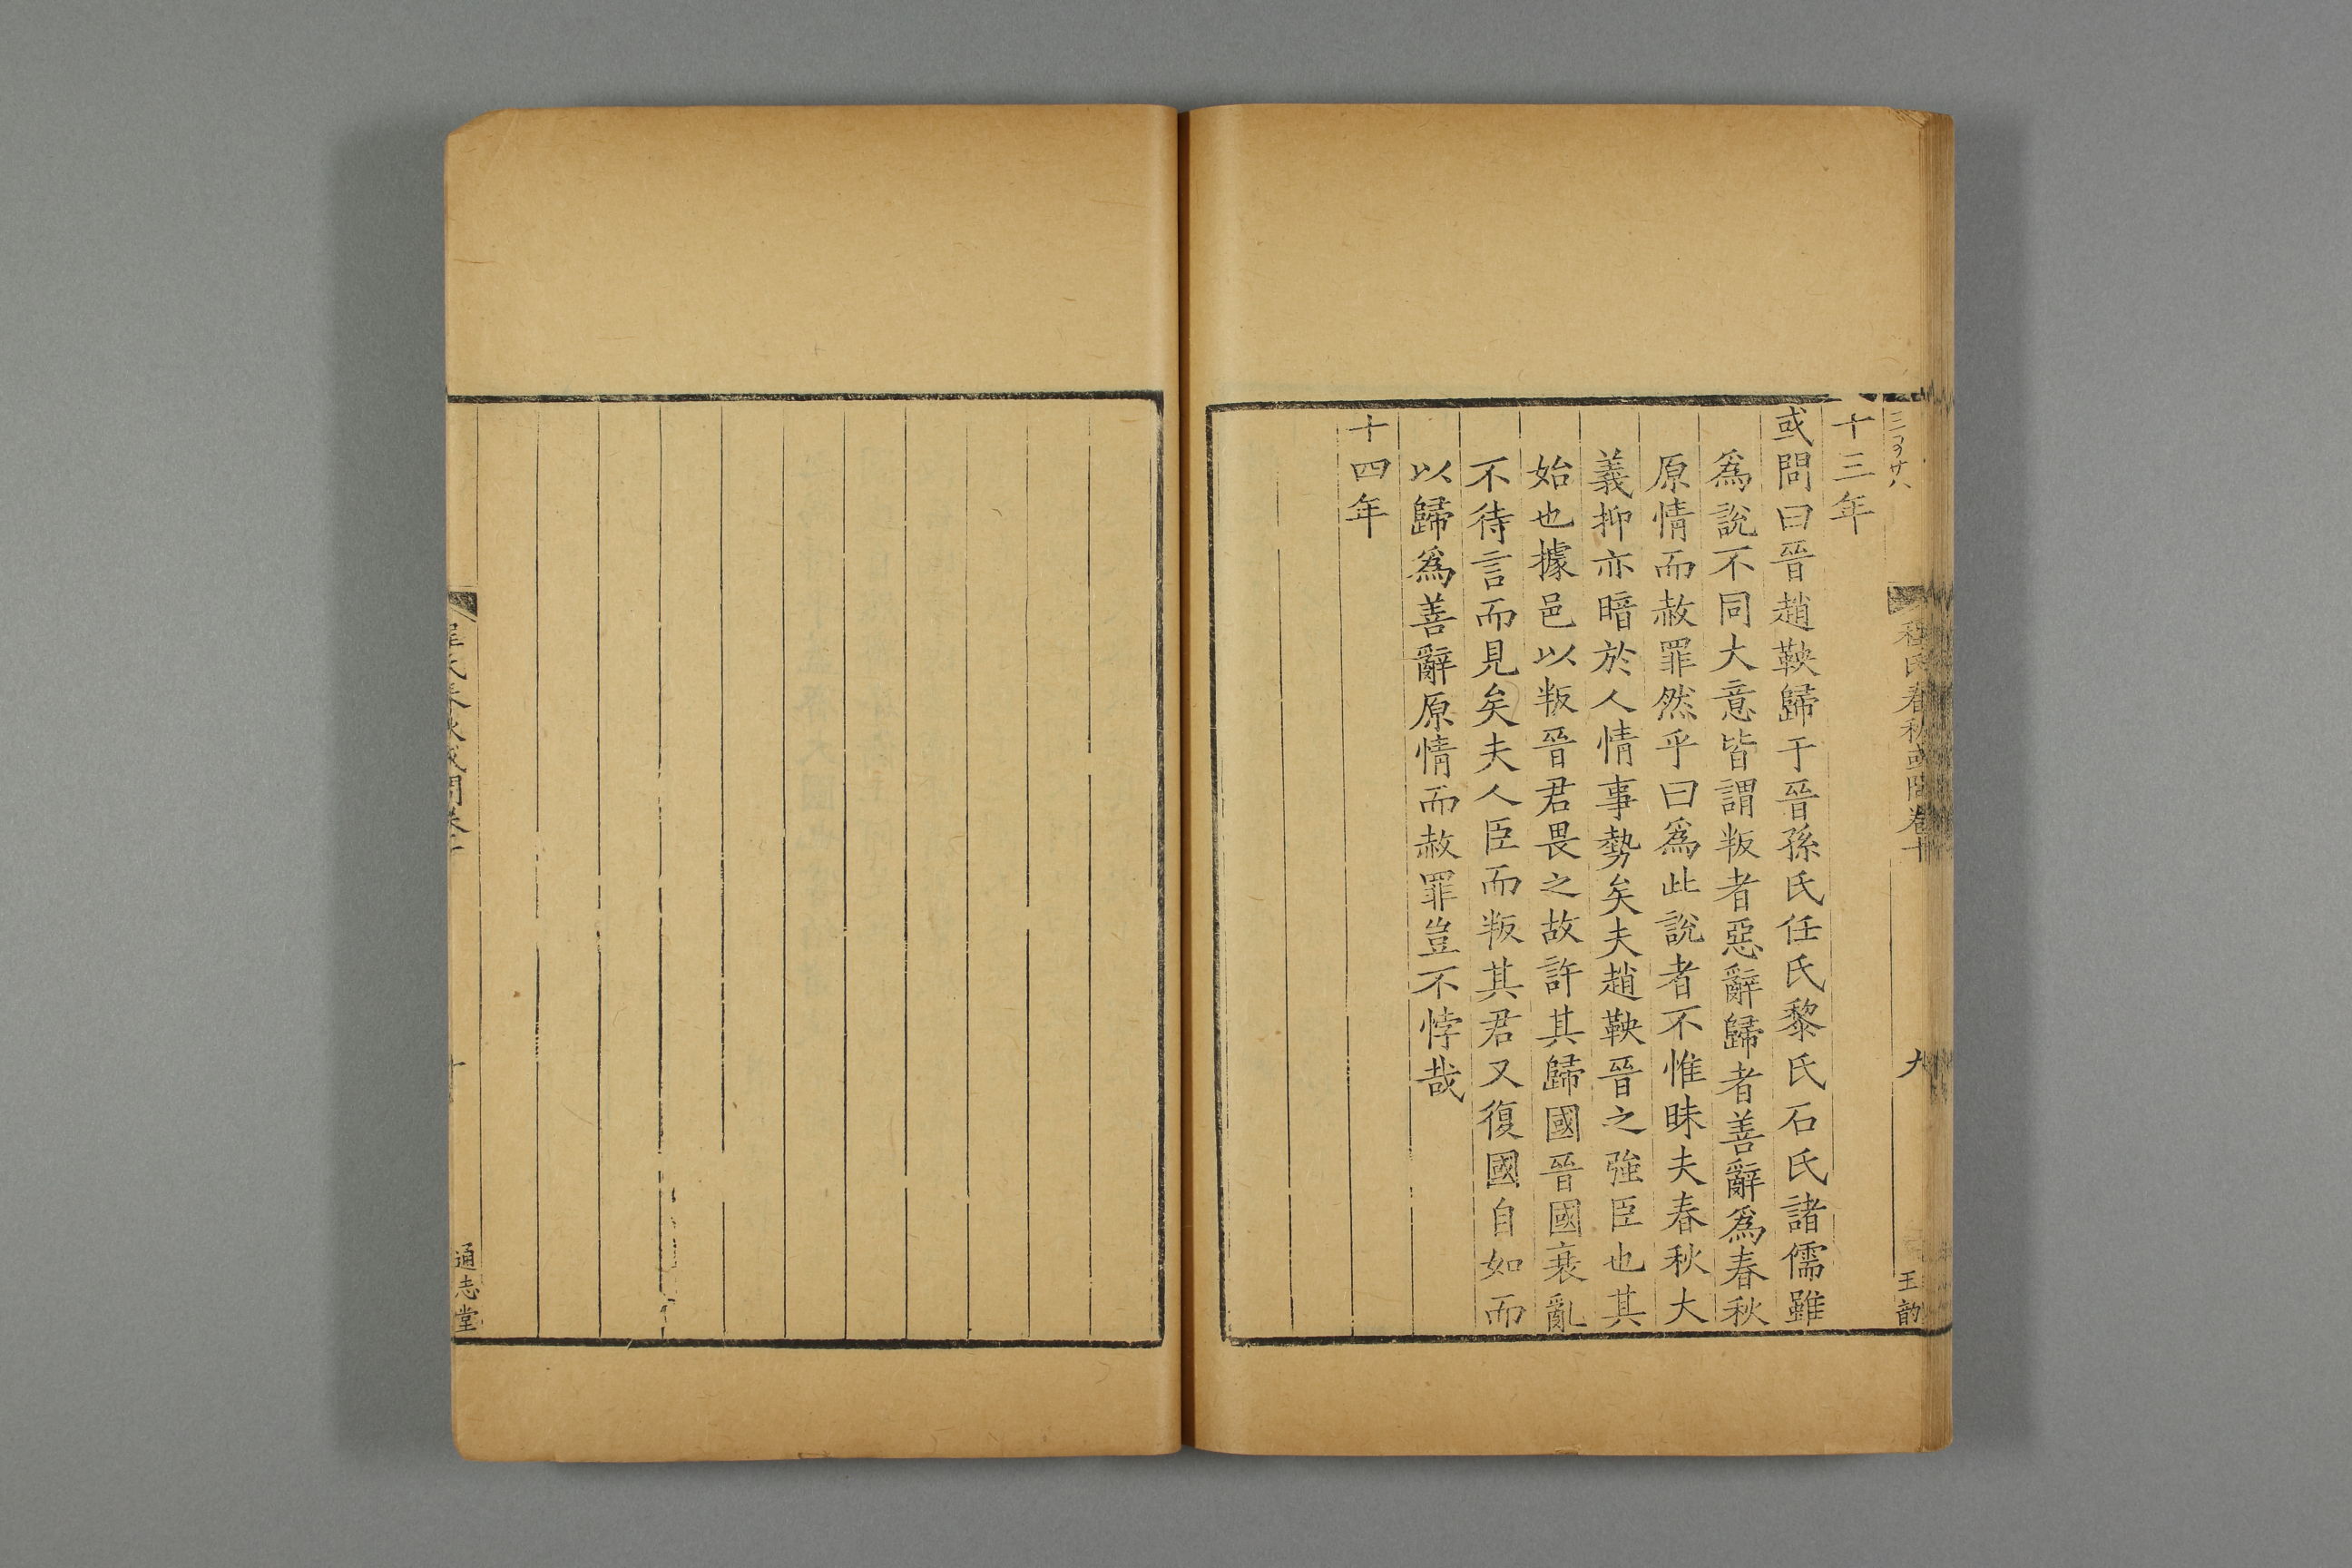 程氏春秋或問卷十
九
王
十三年
或問曰晉趙鞅歸于晉孫氏任氏黎氏石氏諸儒雖
爲說不同大意皆謂叛者惡辭歸者善辭爲春秋
原情而赦罪然乎曰爲此說者不惟昧夫春秋大
義抑亦暗於人情事勢矣夫趙鞅晉之強臣也其
始也據邑以叛晉君畏之故許其歸國晉國衰亂
不待言而見矣夫人臣而叛其君又復國自如而
以歸爲善辭原情而赦罪豈不悖哉
十四年
程氏春秋或問卷十
通志堂